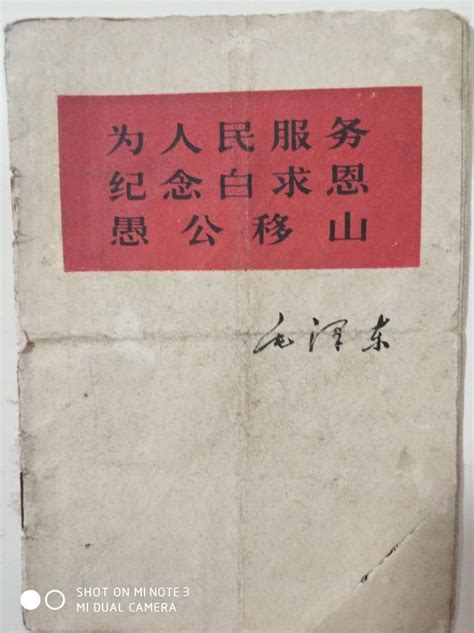 为人民服务
纪念白求恩
愚公移山
毛泽东
SHOT ON MI NOTE 3
MI DUAL CAMERA